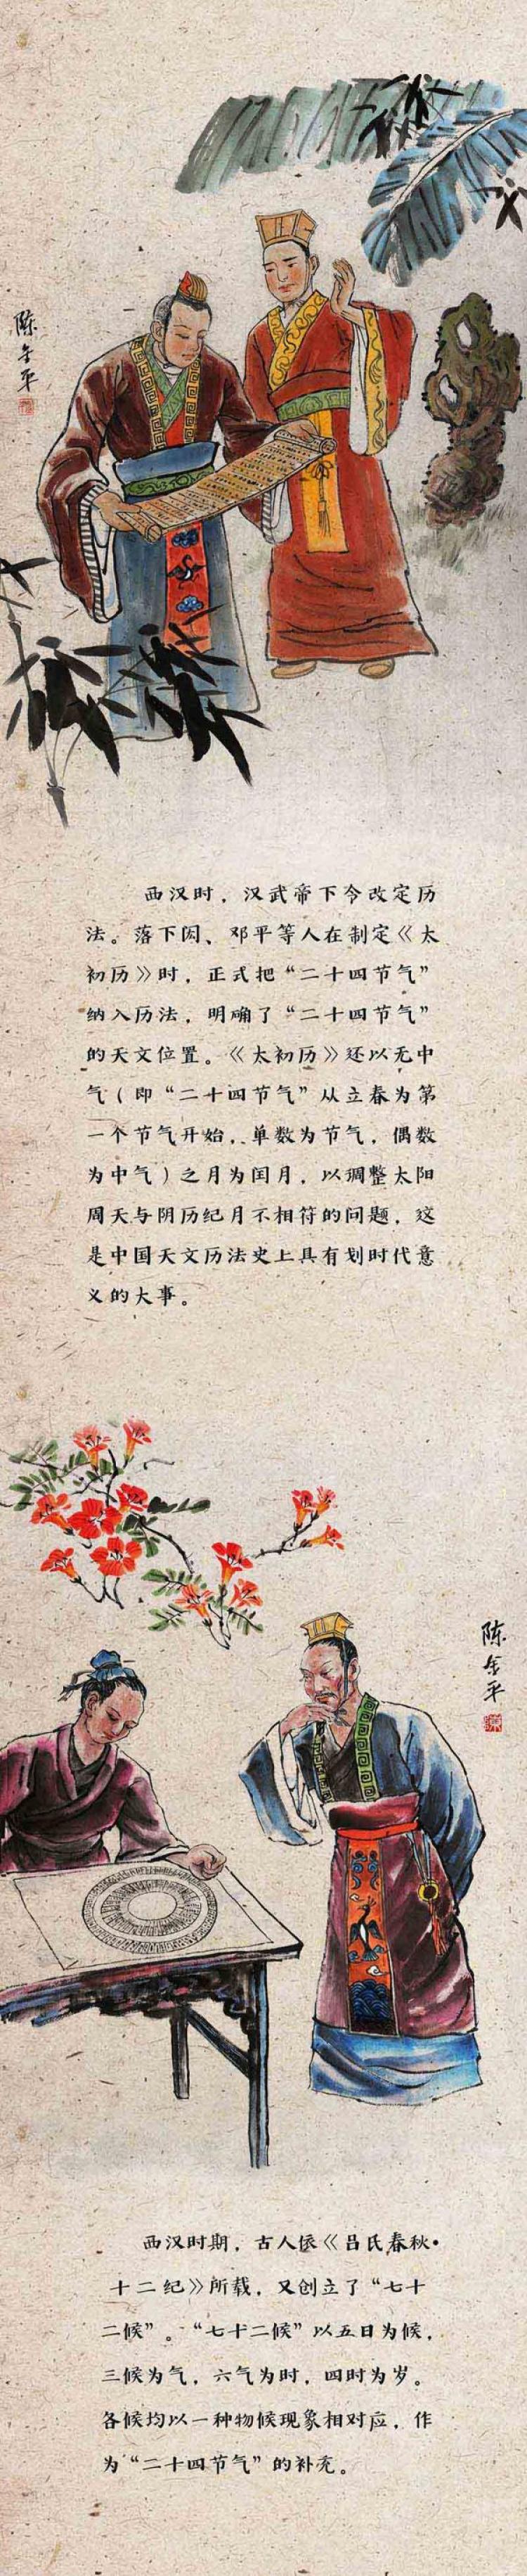 陈金平
西汉时，汉武帝下令改定历
法。落下闳、邓平等人在制定《太
初历》时，正式把“二十四节气”
纳入历法，明确了“二十四节气”
的天文位置。《太初历》还以无中
气（即“二十四节气”从立春为第
一个节气开始，单数为节气，偶数
为中气）之月为闰月，以调整太阳
周天与阴历纪月不相符的问题，这
是中国天文历法史上具有划时代意
义的大事。
陈金平
西汉时期，古人依《吕氏春秋·
十二纪》所载，又创立了“七十
二候”。“七十二候”以五日为候，
三候为气，六气为时，四时为岁。
各候均以一种物候现象相对应，作
为“二十四节气”的补充。